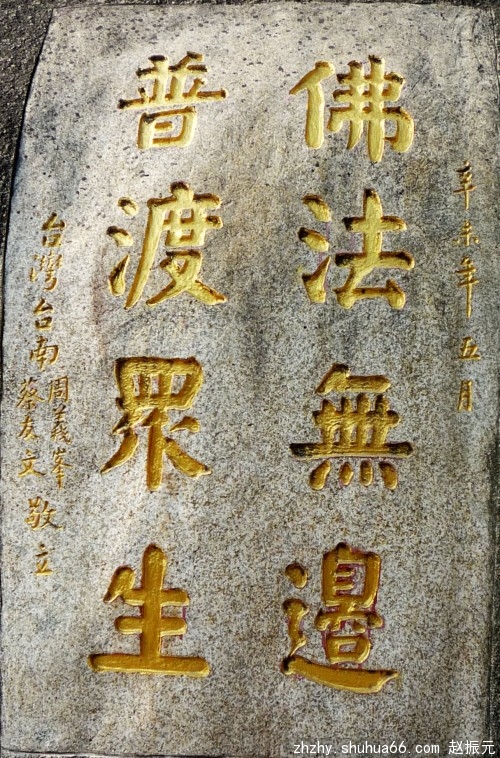 辛未年五月
佛法無邊
普渡眾生
台灣台南
周義峯
蔡友文
敬立
zhzhy.shuhua66.com 赵振元